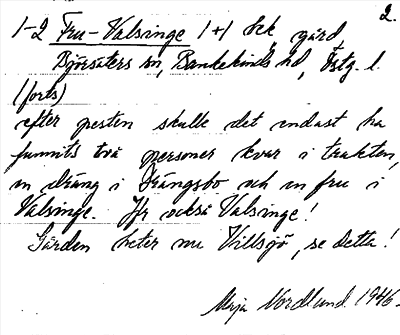 2.
1-2 Fru-Valsinge 1+1 sek gård,
Björsäters sn, Bankekinds hd, Östg. l.
(forts)
efter pesten skulle det endast ha
funnits två personer kvar i trakten,
en dräng i Drängsbo och en fru i
Valsinge. Jfr också Valsinge!
Gården heter nu Villsjö, se detta!
Maja Nordlund. 1946.